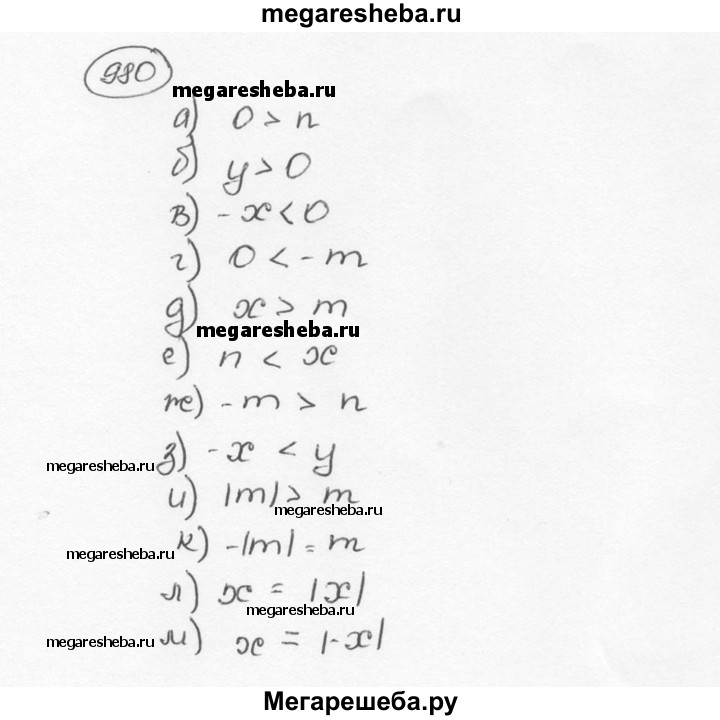 megaresheba.ru
980
megaresheba.ru
а) 0 > n
б) y > 0
в) -x < 0
г) 0 < -m
д) x > m
megaresheba.ru
е) n < x
ж) -m > n
з) -x < y
megaresheba.ru
и) |m| > m
megaresheba.ru
к) -|m| = m
megaresheba.ru
л) x = |x|
megaresheba.ru
м) x = |-x|
megaresheba.ru
Мегарешеба.ру